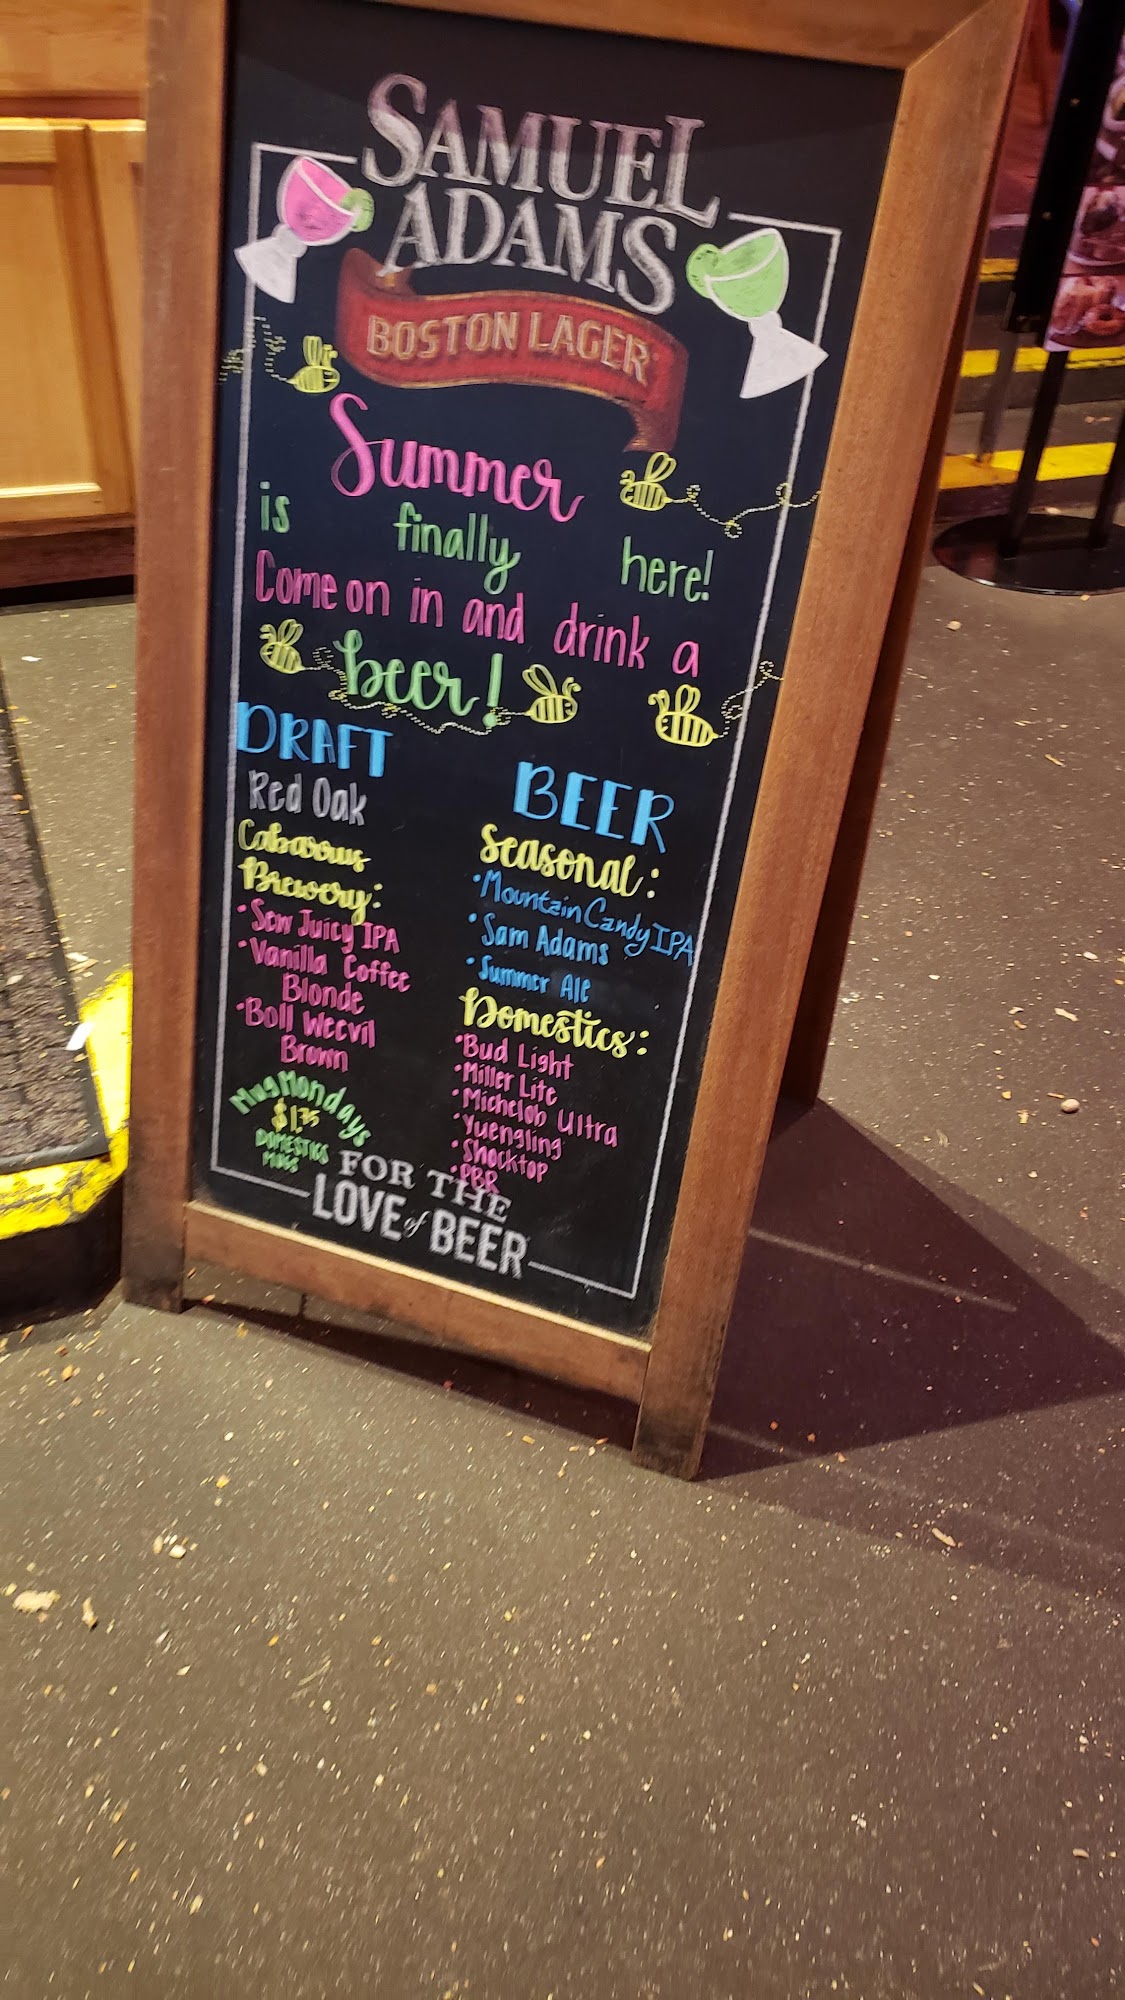 SAMUEL
ADAMS
BOSTON LAGER
Summer
is finally here!
Come on in and drink a
beer!
DRAFT
Red Oak
Cabarrus
Brewery:
•Sew Juicy IPA
•Vanilla Coffee
Blonde
•Boll Weevil
Brown
Mug Mondays
$1.75
DOMESTICS
MUGS
BEER
Seasonal:
•Mountain Candy IPA
•Sam Adams
•Summer Ale
Domestics:
•Bud Light
•Miller Lite
•Michelob Ultra
•Yuengling
•Shocktop
•PBR
FOR THE
LOVE of BEER